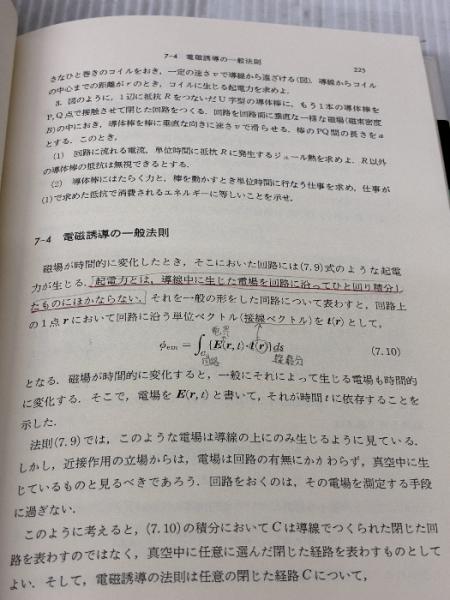 7-4 電磁誘導の一般法則
225
さなひと巻きのコイルをおき，一定の速さvで導線から遠ざける(図)．導線からコイル
の中心までの距離がrのとき，コイルに生じる起電力を求めよ．
3. 図のように，1辺に抵抗RをつないだU字型の導体棒に，もう1本の導体棒を
P, Q点で接触させて閉じた回路をつくる．回路を回路面に垂直な一様な磁場(磁束密度
B)の中におき，導体棒を棒に垂直な向きに速さvで滑らせる．棒のPQ間の長さをa
とする．このとき，
(1) 回路に流れる電流，単位時間に抵抗Rに発生するジュール熱を求めよ．R以外
の導体棒の抵抗は無視できるとする．
(2) 導体棒にはたらく力と，棒を動かすとき単位時間に行なう仕事を求め，仕事が
(1)で求めた抵抗で消費されるエネルギーに等しいことを示せ．
7-4 電磁誘導の一般法則
磁場が時間的に変化したとき，そこにおいた回路には(7.9)式のような起電
力が生じる．起電力とは，導線中に生じた電場を回路に沿ってひと回り積分し
たものにほかならない．それを一般の形をした回路について表わすと，回路上
の1点rにおいて回路に沿う単位ベクトル(接線ベクトル)をt(r)として，
電界
φem = ∫C {E(r, t)·t(r)}ds (7.10)
回路 線積分
となる．磁場が時間的に変化すると，一般にそれによって生じる電場も時間的
に変化する．そこで，電場をE(r, t)と書いて，それが時間tに依存することを
示した．
法則(7.9)では，このような電場は導線の上にのみ生じるように見ている．
しかし，近接作用の立場からは，電場は回路の有無にかかわらず，真空中に生
じているものと見るべきであろう．回路をおくのは，その電場を測定する手段
に過ぎない．
このように考えると，(7.10)の積分においてCは導線でつくられた閉じた回
路を表わすのではなく，真空中に任意に選んだ閉じた経路を表わすものとして
よい．そして，電磁誘導の法則は任意の閉じた経路Cについて，